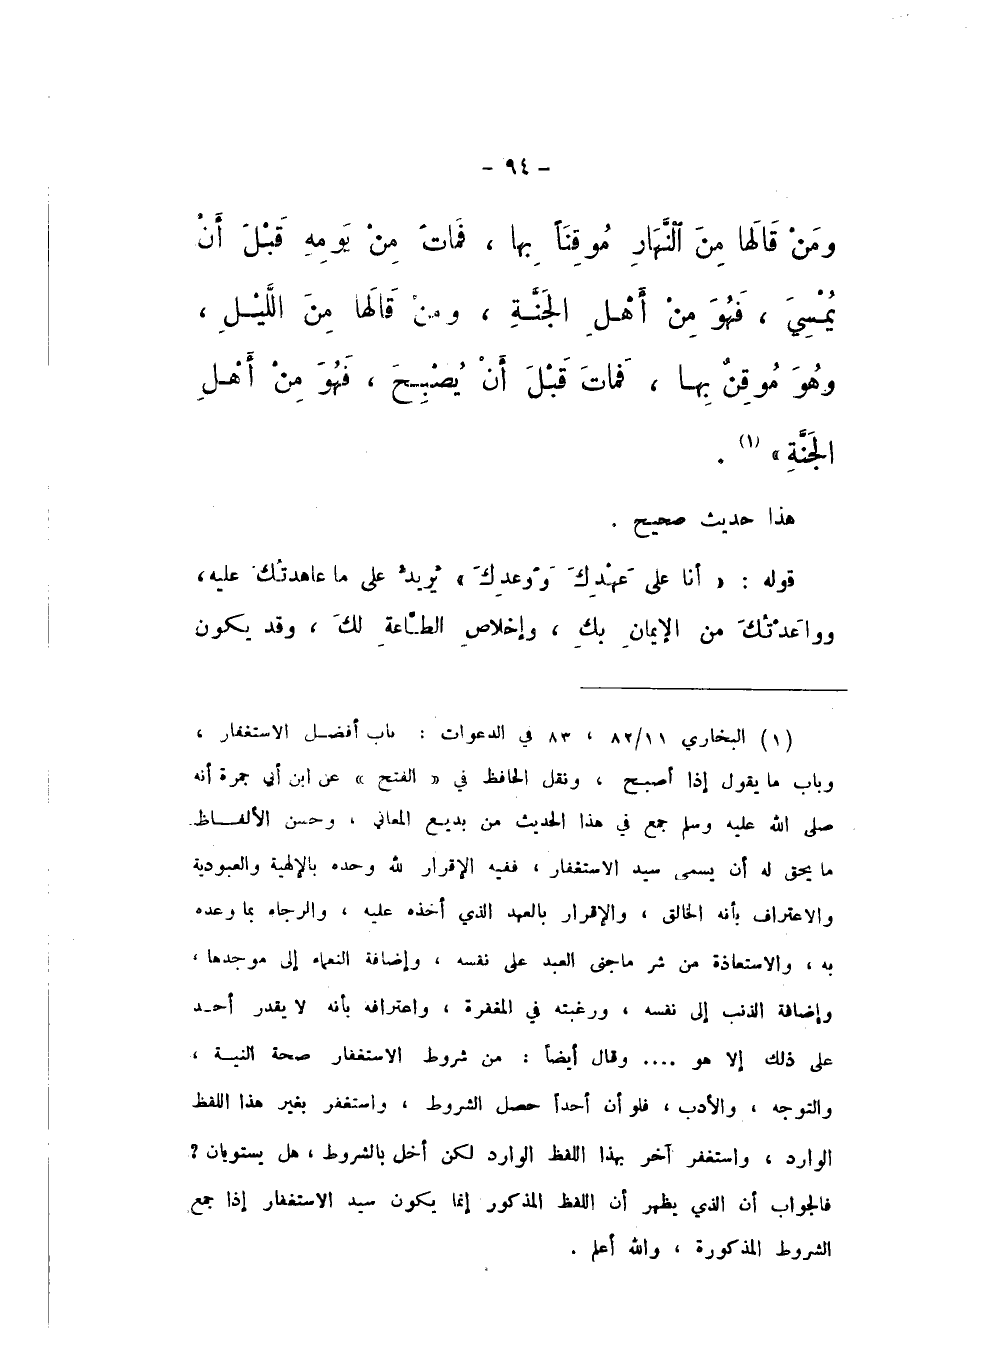 - ٩٤ -
ومَنْ قَالَها مِنَ ٱلنَّهَارِ مُوقِنَاً بِها ، فَماتَ مِنْ يَومِهِ قَبْلَ أَنْ
يُمْسِيَ ، فَهُوَ مِنْ أَهْلِ الجَنَّةِ ، ومنْ قَالَها مِنَ اللَّيْلِ ،
وهُوَ مُوقِنٌ بِها ، فَماتَ قَبْلَ أَنْ يُصْبِحَ ، فَهُوَ مِنْ أَهْلِ
الجَنَّةِ » (١) .
هذا حديث صحيح .
قوله : « أنا على عَهْدِكَ وَوَعدِكَ » يُريدُ على ما عاهدتُكَ عليه،
وواعَدْتُكَ من الإيمانِ بكِ ، وإخلاصِ الطـّاعةِ لكَ ، وقد يكون
(١) البخاري ٨٢/١١ ، ٨٣ في الدعوات : باب أفضـل الاستغفار ،
وباب ما يقول إذا أصبح ، ونقل الحافظ في « الفتح » عن ابن أبي جمرة أنه
صلى الله عليه وسلم جمع في هذا الحديث من بديع المعاني ، وحسن الألفـاظ
ما يحق له أن يسمى سيد الاستغفار ، ففيه الإقرار لله وحده بالإلهية والعبودية
والاعتراف بأنه الخالق ، والإقرار بالعهد الذي أخذه عليه ، والرجاء بما وعده
به ، والاستعاذة من شر ماجنى العبد على نفسه ، وإضافة النعماء إلى موجدها ،
وإضافة الذنب إلى نفسه ، ورغبته في المغفرة ، واعترافه بأنه لا يقدر أحـد
على ذلك إلا هو .... وقال أيضاً : من شروط الاستغفار صحة النيـة ،
والتوجه ، والأدب ، فلو أن أحداً حصل الشروط ، واستغفر بغير هذا اللفظ
الوارد ، واستغفر آخر بهذا اللفظ الوارد لكن أخل بالشروط ، هل يستويان ؟
فالجواب أن الذي يظهر أن اللفظ المذكور إنما يكون سيد الاستغفار إذا جمع
الشروط المذكورة ، والله أعلم .